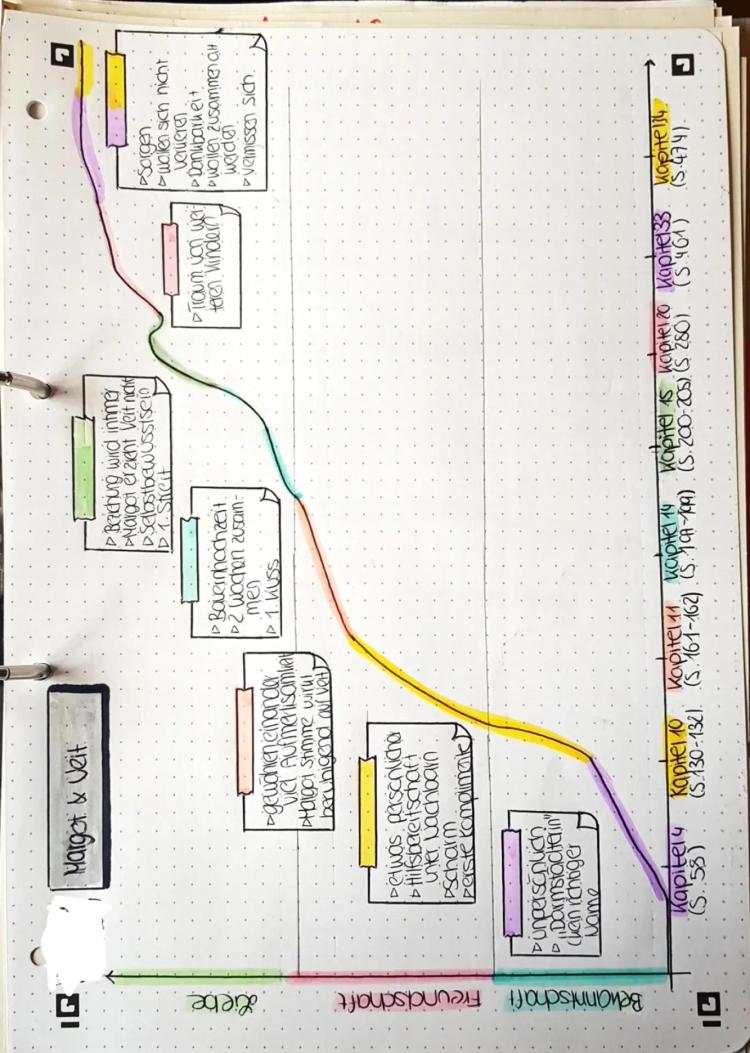 Margot & Veit
Liebe
Freundschaft
Bekanntschaft
▷ unpersönlich
▷ „Darmstädterin"
(kein richtiger
Name
▷ etwas persönlicher
▷ Hilfsbereitschaft
unter Nachbarn
▷ Scharm
▷ erste Komplimente
▷ gewähren einander
viel Aufmerksamkeit
▷ Margot stimme wirkt
beruhigend auf Veit
▷ Bauernhochzeit
▷ 2 Wochen zusam-
men
▷ 1. Kuss
▷ Beziehung wird intimer
▷ Margot erzieht Veit nicht
▷ Selbstbewusstsein
▷ 1. Streit
▷ Traum von wei-
teren Kindern
▷ Sorgen
▷ wollen sich nicht
verlieren
▷ Dankbarkeit
▷ wollen zusammen alt
werden
▷ vermissen sich
Kapitel 4
(S. 58)
Kapitel 10
(S.130-132)
Kapitel 11
(S. 161-162)
Kapitel 14
Kapitel 15
(S. 200-205)
Kapitel 20
(S. 280)
Kapitel 33
(S. 461)
Kapitel 34
(S. 474)